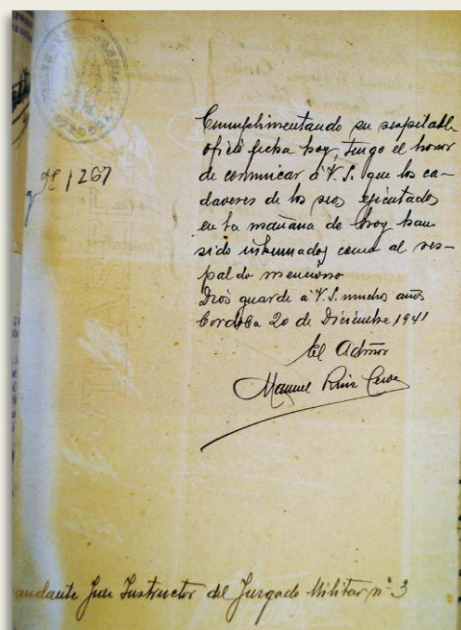 Nº 1267
Cumplimentando su respetable
oficio fecha hoy, tengo el honor
de comunicar á V.S. que los ca-
daveres de los reos ejecutados
en la mañana de hoy han
sido inhumados como al res-
paldo menciono
Dios guarde á V.S. muchos años
Cordoba 20 de Diciembre 1941
El Admor
Manuel Ruiz
andante Juez Instructor del Juzgado Militar nº 3